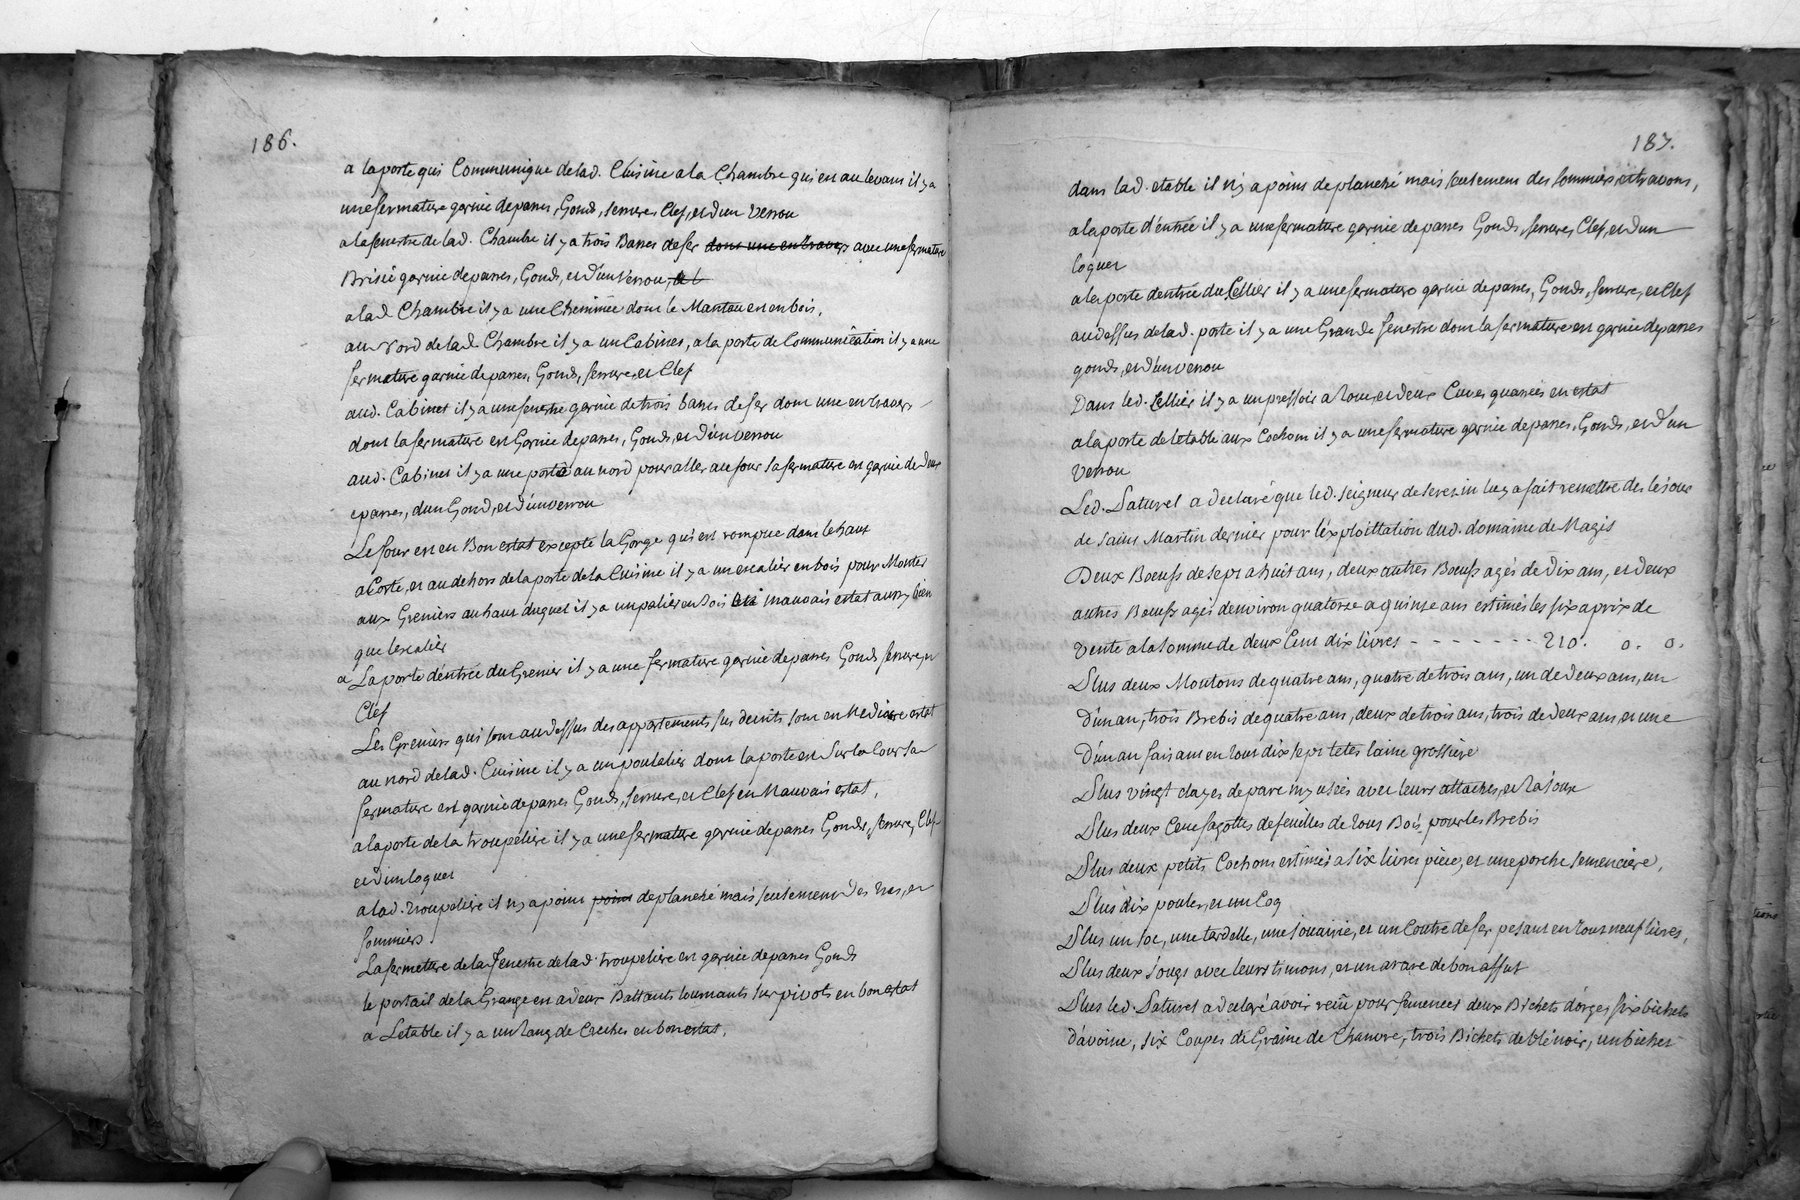 186.
a la porte qui Communique de lad. Cuisine a la Chambre qui est au levant il y a
une fermature garnie de parres, Gonds, serrures Clef, et d'un Verrou
a la fenestre de lad. Chambre il y a trois Barres de fer dont une en travers avec une fermature
Brisée garnie de parres, Gonds, et d'un Verrou,
a lad Chambre il y a une Cheminée dont le Manteau est en bois,
au Nord de lad Chambre il y a un Cabinet, a la porte de Communication il y a une
fermature garnie de parres, Gonds, serrure, et Clef
aud. Cabinet il y a une fenestre garnie de trois barres de fer dont une en travers
dont la fermature est Garnie de parres, Gonds, et d'un verrou
aud. Cabinet il y a une porte au nord pour aller au four sa fermature est garnie de deux
eparres, d'un Gond, et d'un verrou
Le four est en Bon estat excepté la Gorge qui est rompue dans le haut
a Coté, et au dehors de la porte de la Cuisine il y a un escalier en bois pour Monter
aux Greniers au haut duquel il y a un palier en bois mauvais estat aussy bien
que l'escalier
a La porte d'entrée du Grenier il y a une fermature garnie de parres Gonds serrure, et
Clef
Les Greniers qui sont au dessus des appartements sus decrits sont en Mediocre estat
au nord de lad. Cuisine il y a un poulalier dont la porte est sur la Cour sa
fermature est garnie de parres Gonds, serrure, et Clef en Mauvais estat,
a la porte de la troupeliere il y a une fermature garnie de parres Gonds, serrure, Clef
et d'un loquet
a lad. troupeliere il n'y a point point de planché mais seulement des tras, et
sommiers
La fermeture de la fenestre de lad. troupeliere est garnie de parres Gonds
le portail de la Grange est a deux Battants tournants sur pivots en bon estat
a L'etable il y a un Rang de Creches en bon estat,
187.
dans lad. etable il n'y a point de planché mais seulement des sommiers et travons,
a la porte d'entrée il y a une fermature garnie de parres Gonds, serrure, Clef, et d'un
loquet
a la porte d'entrée du Cellier il y a une fermature garnie de parres, Gonds, serrure, et Clef
au dessus de lad. porte il y a une Grande fenestre dont la fermature est garnie de parres
gonds, et d'un verrou
Dans led. Cellier il y a un pressoir a roue, et deux Cuves quarrées en estat
a la porte de l'etable aux Cochons il y a une fermature garnie de parres, Gonds, et d'un
Verrou
Led. Saturel a declaré que led. seigneur de Serezin luy a fait remettre des le jour
de saint Martin dernier pour l'exploittation dud. domaine de Magis
Deux Bœufs de sept a huit ans, deux autres Bœufs agés de dix ans, et deux
autres Bœufs agés d'environ quatorze a quinze ans estimés les six a prix de
vente a la somme de deux Cent dix livres - - - - - - - 210. 0. 0.
Plus deux Moutons de quatre ans, quatre de trois ans, un de deux ans, un
d'un an, trois Brebis de quatre ans, deux de trois ans, trois de deux ans, et une
d'un an faisant en tout dix sept tetes laine grossiere
Plus vingt clayes de parc my usées avec leurs attaches, et Rajoux
Plus deux Cent fagottes de feuilles de tout Bois, pour les Brebis
Plus deux petits Cochons estimés a six livres piece, et une porche semenciere,
Plus dix poules, et un Coq
Plus un soc, une tardelle, une jouairie, et un Coutre de fer pesant en tout neuf livres,
Plus deux jougs avec leurs timons, et un araire de bon affut
Plus led. Saturel a declaré avoir reçû pour semences deux Bichets d'orges six bichets
d'avoine, six Coupes de Graine de Chanvre, trois Bichets de blé noir, un bichet